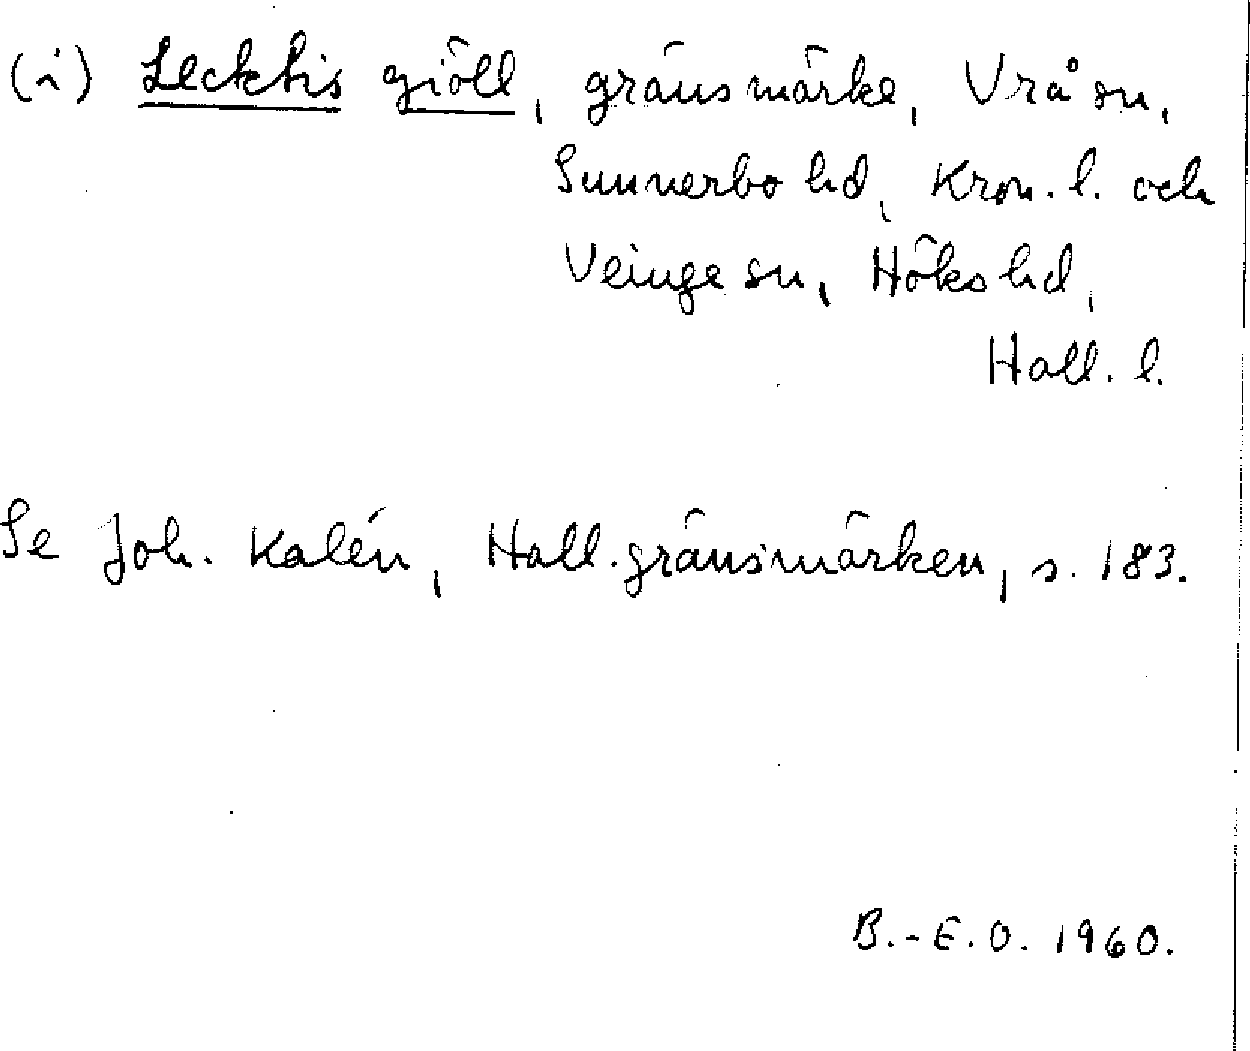 (i) Lecktis giöll, gränsmärke, Vrå sn,
Sunnerbo hd, Kron. l. och
Veinge sn, Höks hd,
Hall. l.
Se Joh. Kalén, Hall. gränsmärken, s. 183.
B.-E.O. 1960.